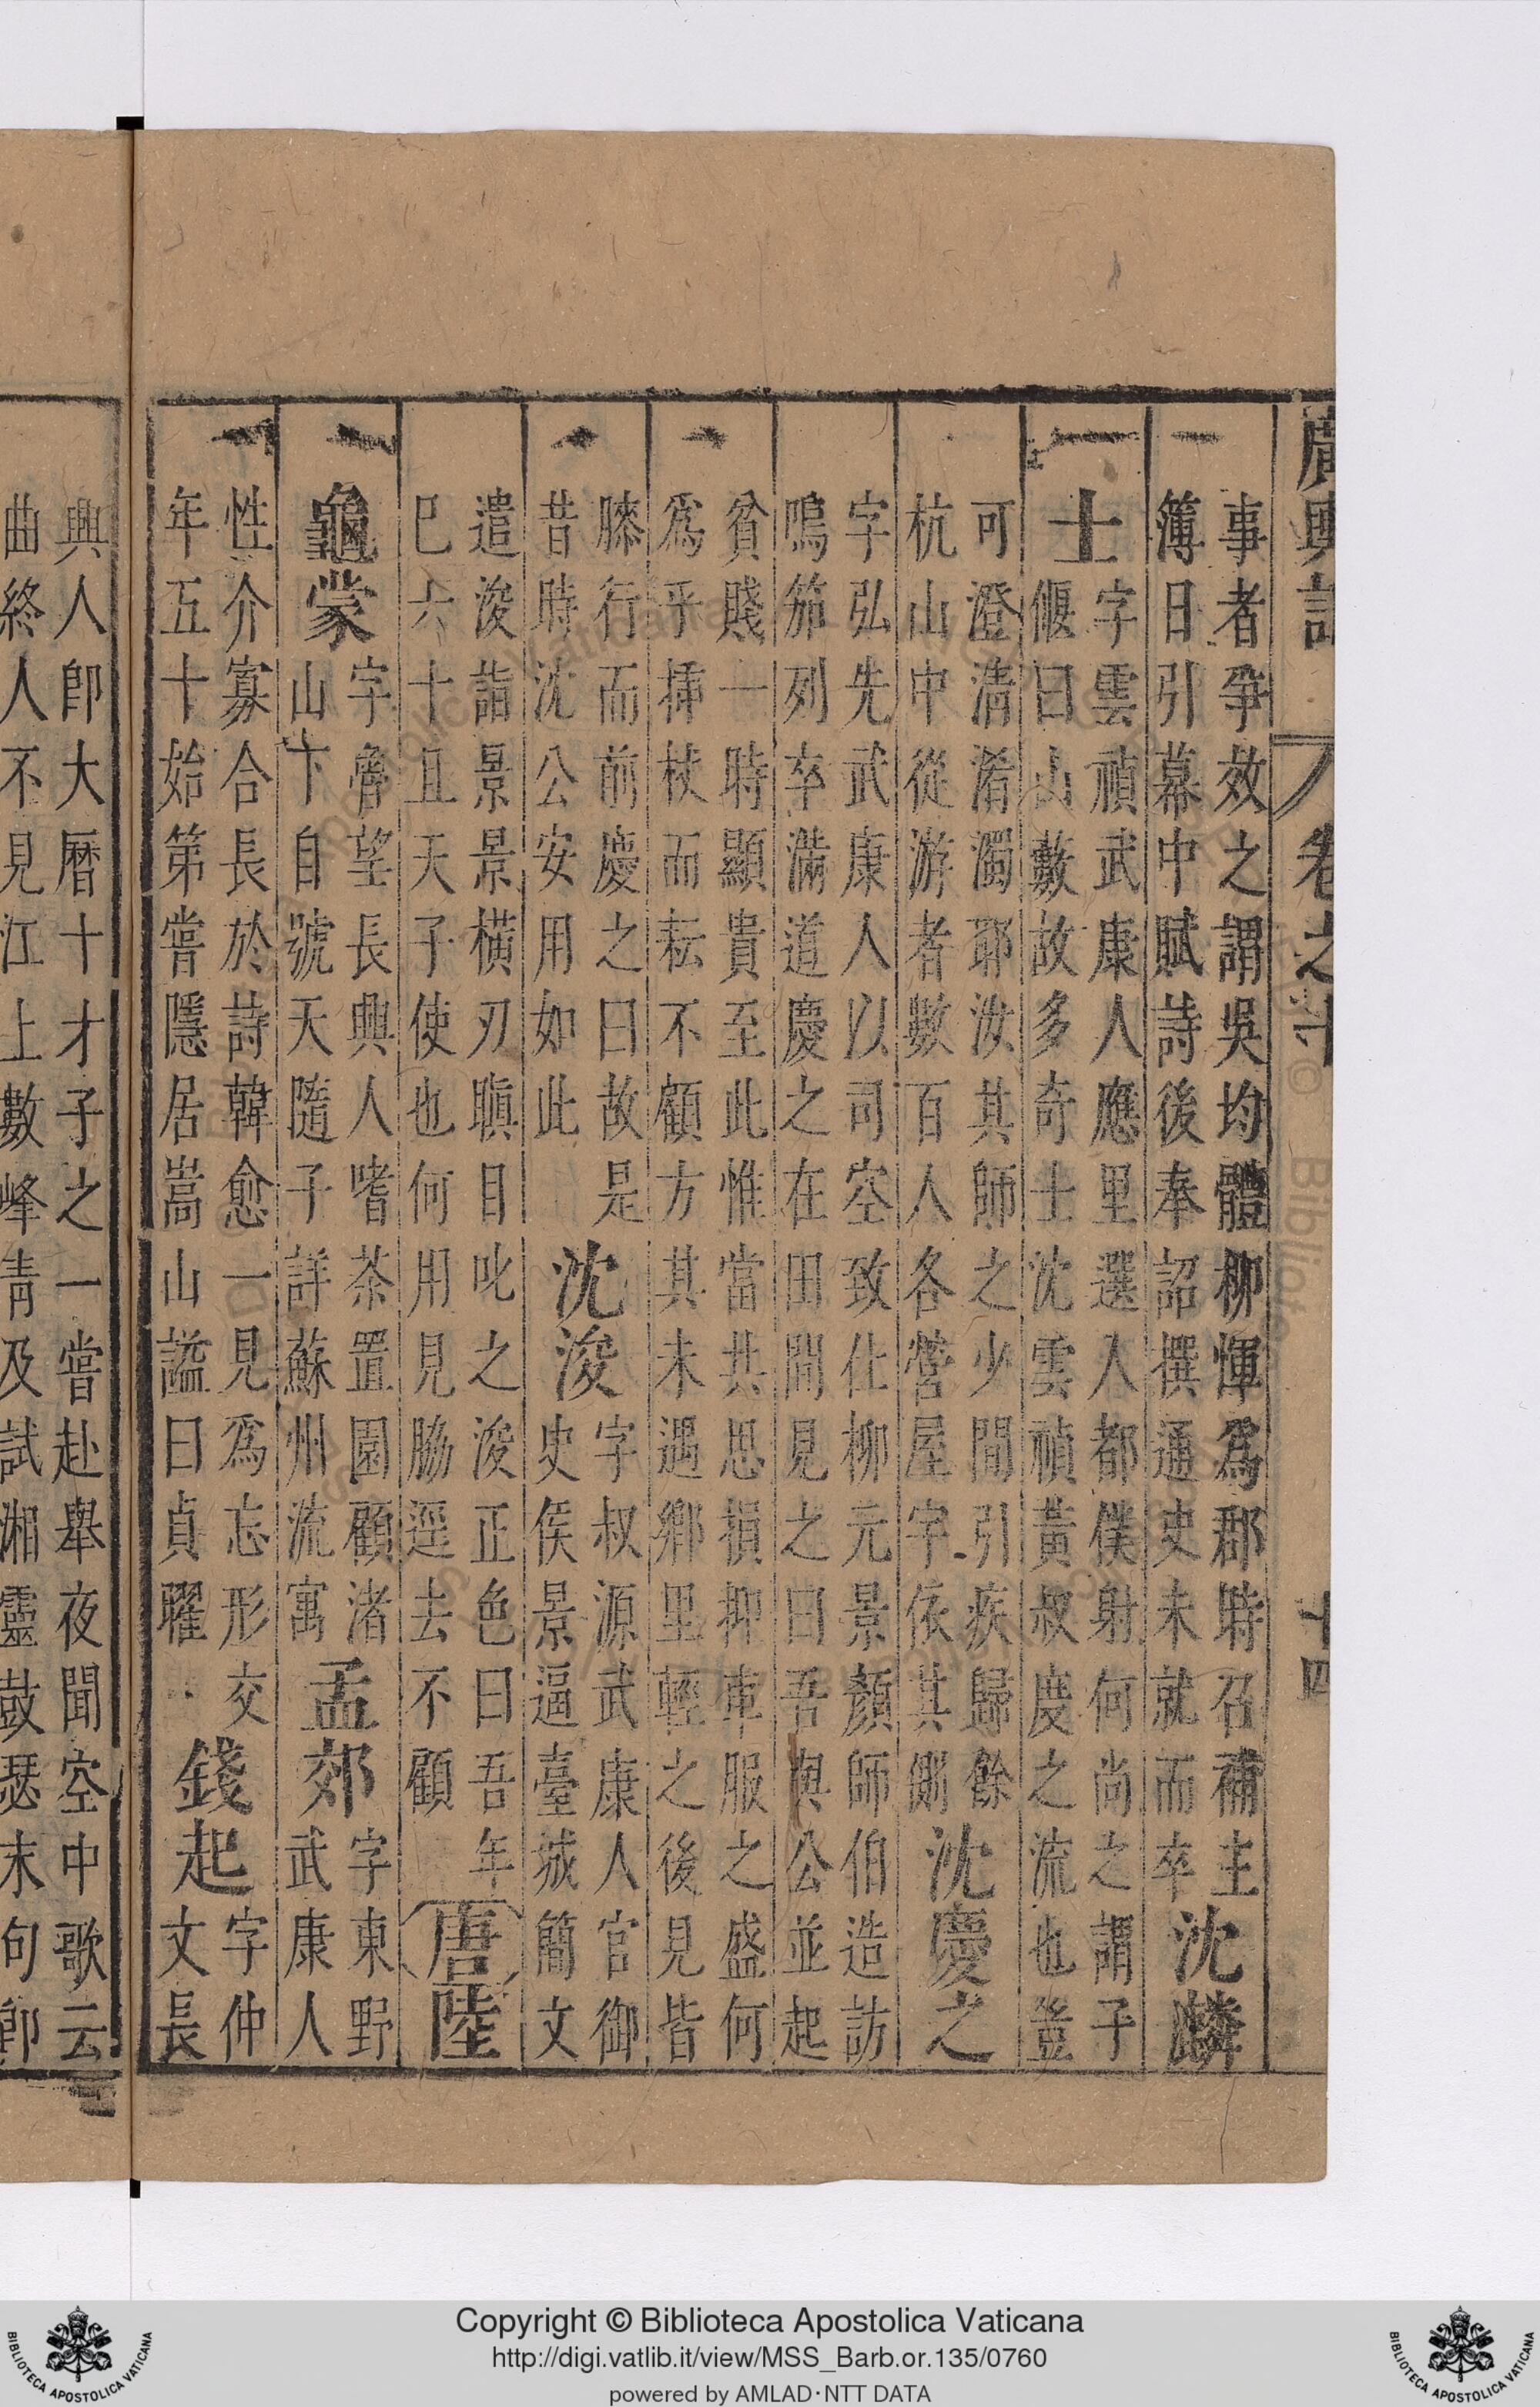 廣輿記 卷之十 十四
事者爭效之謂吳均體柳惲爲郡時召補主
簿日引幕中賦詩後奉詔撰通史未就而卒
沈麟
士
字雲禎武康人應里選入都僕射何尚之謂子
偃曰山藪故多奇士沈雲禎黃叔度之流也豈
可澄淸淆濁耶汝其師之少間引疾歸餘
杭山中從游者數百人各營屋宇依其側
沈慶之
字弘先武康人以司空致仕柳元景顏師伯造訪
鳴笳列卒滿道慶之在田間見之曰吾與公並起
貧賤一時顯貴至此惟當共思損抑車服之盛何
爲乎揷杖而耘不顧方其未遇鄉里輕之後見皆
膝行而前慶之曰故是
昔時沈公安用如此
沈浚
字叔源武康人官御
史侯景逼臺城簡文
遣浚詣景景橫刃瞋目叱之浚正色曰吾年
巳六十且天子使也何用見脇逕去不顧
唐
陸
龜蒙
字魯望長興人嗜茶置園顧渚
山下自號天隨子詳蘇州流寓
孟郊
字東野
武康人
性介寡合長於詩韓愈一見爲忘形交
年五十始第嘗隱居嵩山謚曰貞曜
錢起
字仲
文長
興人卽大曆十才子之一嘗赴舉夜聞空中歌云
曲終人不見江上數峰靑及試湘靈鼓瑟末句卽
Copyright © Biblioteca Apostolica Vaticana
http://digi.vatlib.it/view/MSS_Barb.or.135/0760
powered by AMLAD·NTT DATA
BIBLIOTECA APOSTOLICA VATICANA
BIBLIOTECA APOSTOLICA VATICANA